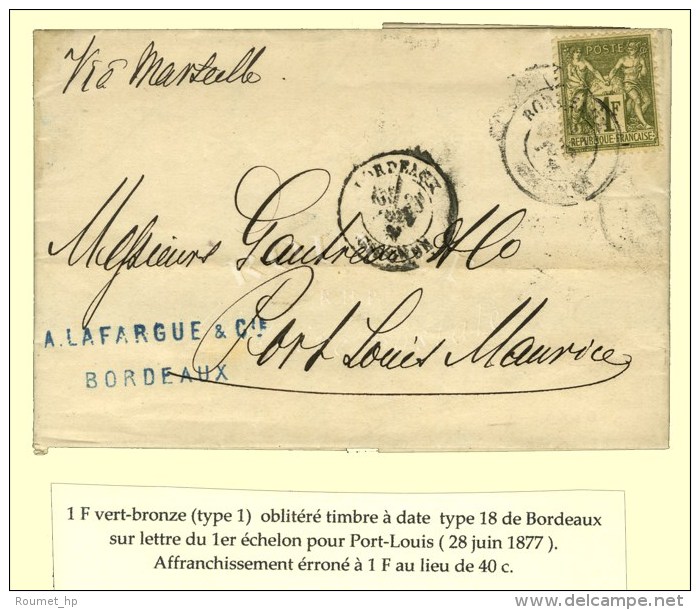 Via Marseille
POSTE
1F
REPUBLIQUE FRANCAISE
BORDEAUX
Messieurs Gautreau & Co
Port Louis Maurice
A. LAFARGUE & CIE
BORDEAUX
1 F vert-bronze (type 1) oblitéré timbre à date type 18 de Bordeaux
sur lettre du 1er échelon pour Port-Louis ( 28 juin 1877 ).
Affranchissement érroné à 1 F au lieu de 40 c.
Roumet_hp
©DELCAMPE.NET